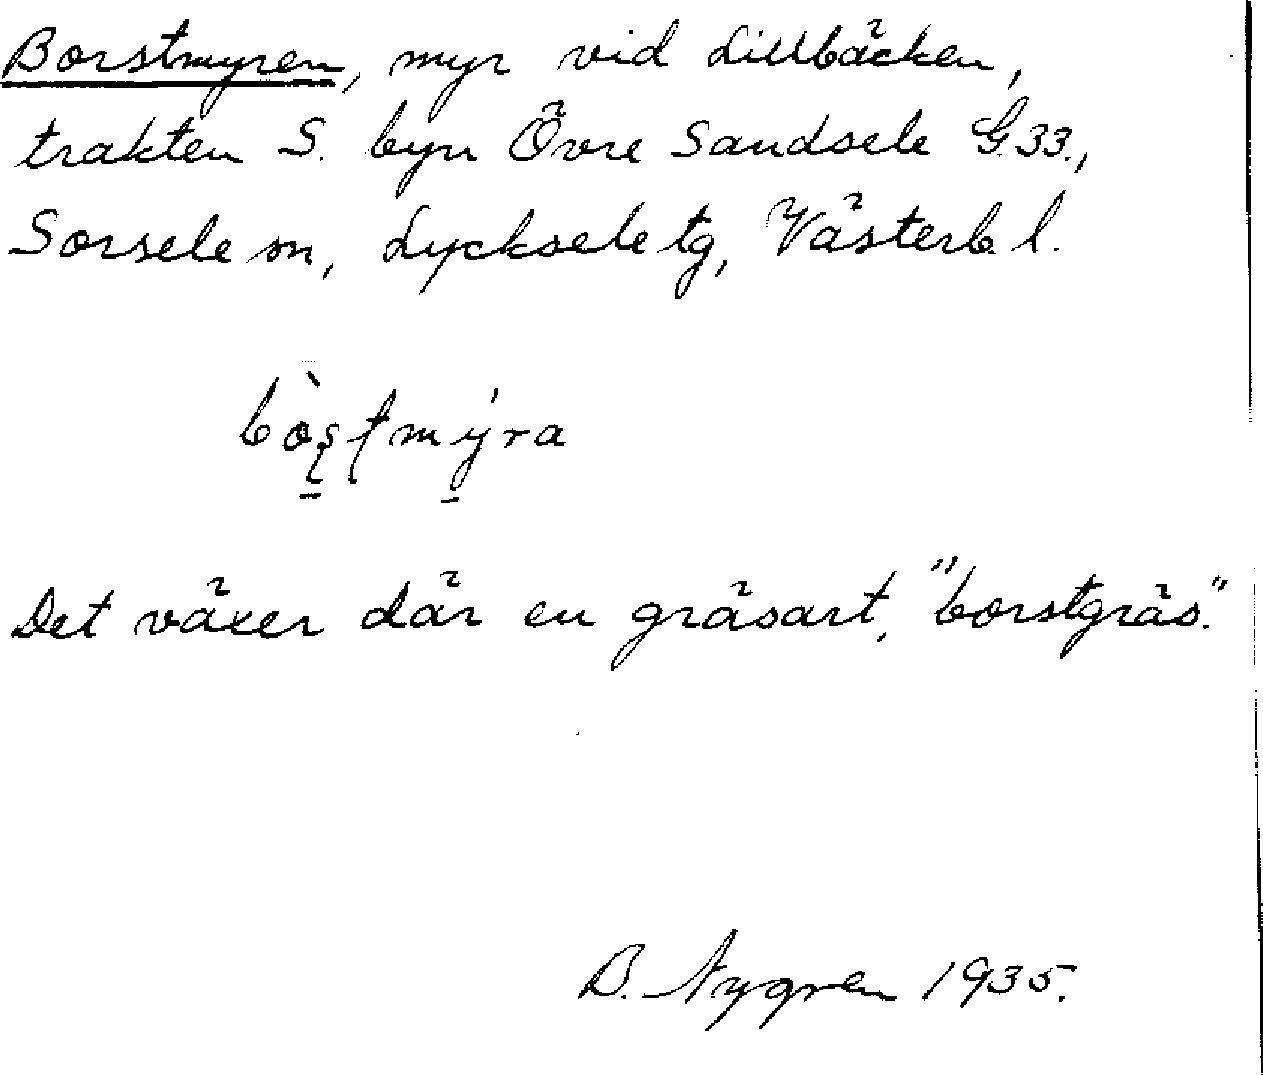 Borstmyren, myr vid Lillbäcken,
trakten S. byn Övre Sandsele G.33.,
Sorsele sn, Lycksele tg, Västerb. l.
bòʂʈmýra
Det växer där en gräsart, "borstgräs."
B. Nygren 1935.